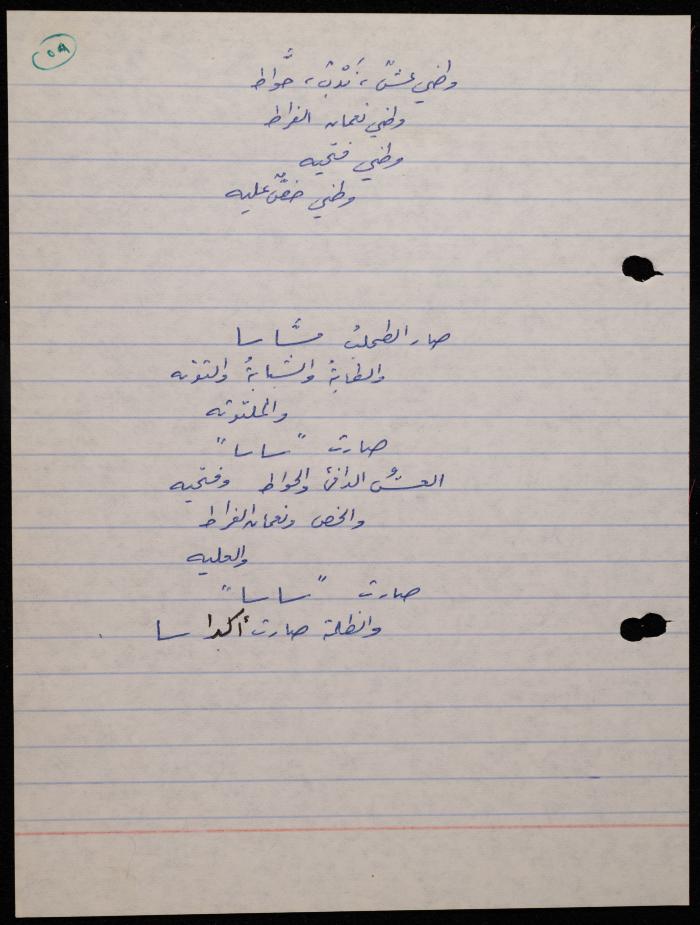 وطني عشّ، نَدْبٌ، حَوّاط
وطني نعمان الفراط
وطني فتحيه
وطني عليه
صار الطحلبُ مسَّاسا
والطابةُ والشبابةُ والتوته
والملتوته
صارت "ساسا"
العشُّ الدافئ والحواط وفتحيه
والخص ونعمان الفراط
والعليه
صارت "ساسا"
والطلقة صارت أكداسا